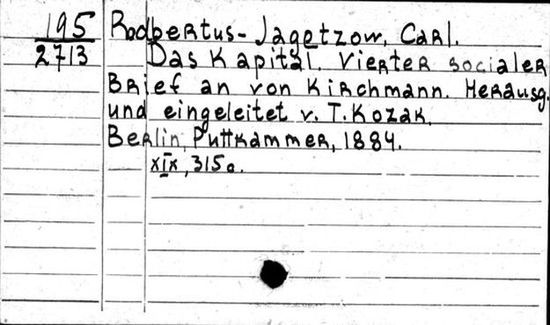 195
2713
Rodbertus-Jagetzow, Carl.
Das Kapital. Vierter socialer
Brief an von Kirchmann. Herausg.
und eingeleitet v. T. Kozak.
Berlin, Puttkammer, 1884.
XIX, 315 c.